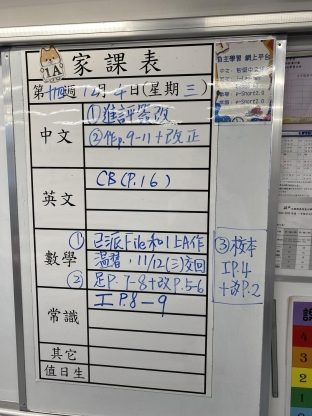 1A
家課表
第十四週 12月4日(星期三)
自主學習 網上平台
中文
①進評簽改
②作p.9-11+改正
英文
CB(P.16)
數學
①已派File和11A作
溫習,11/12(三)交回
②足P.7-8+改P.5-6
③校本
IP.4
+改P.2
常識
工P.8-9
其它
值日生